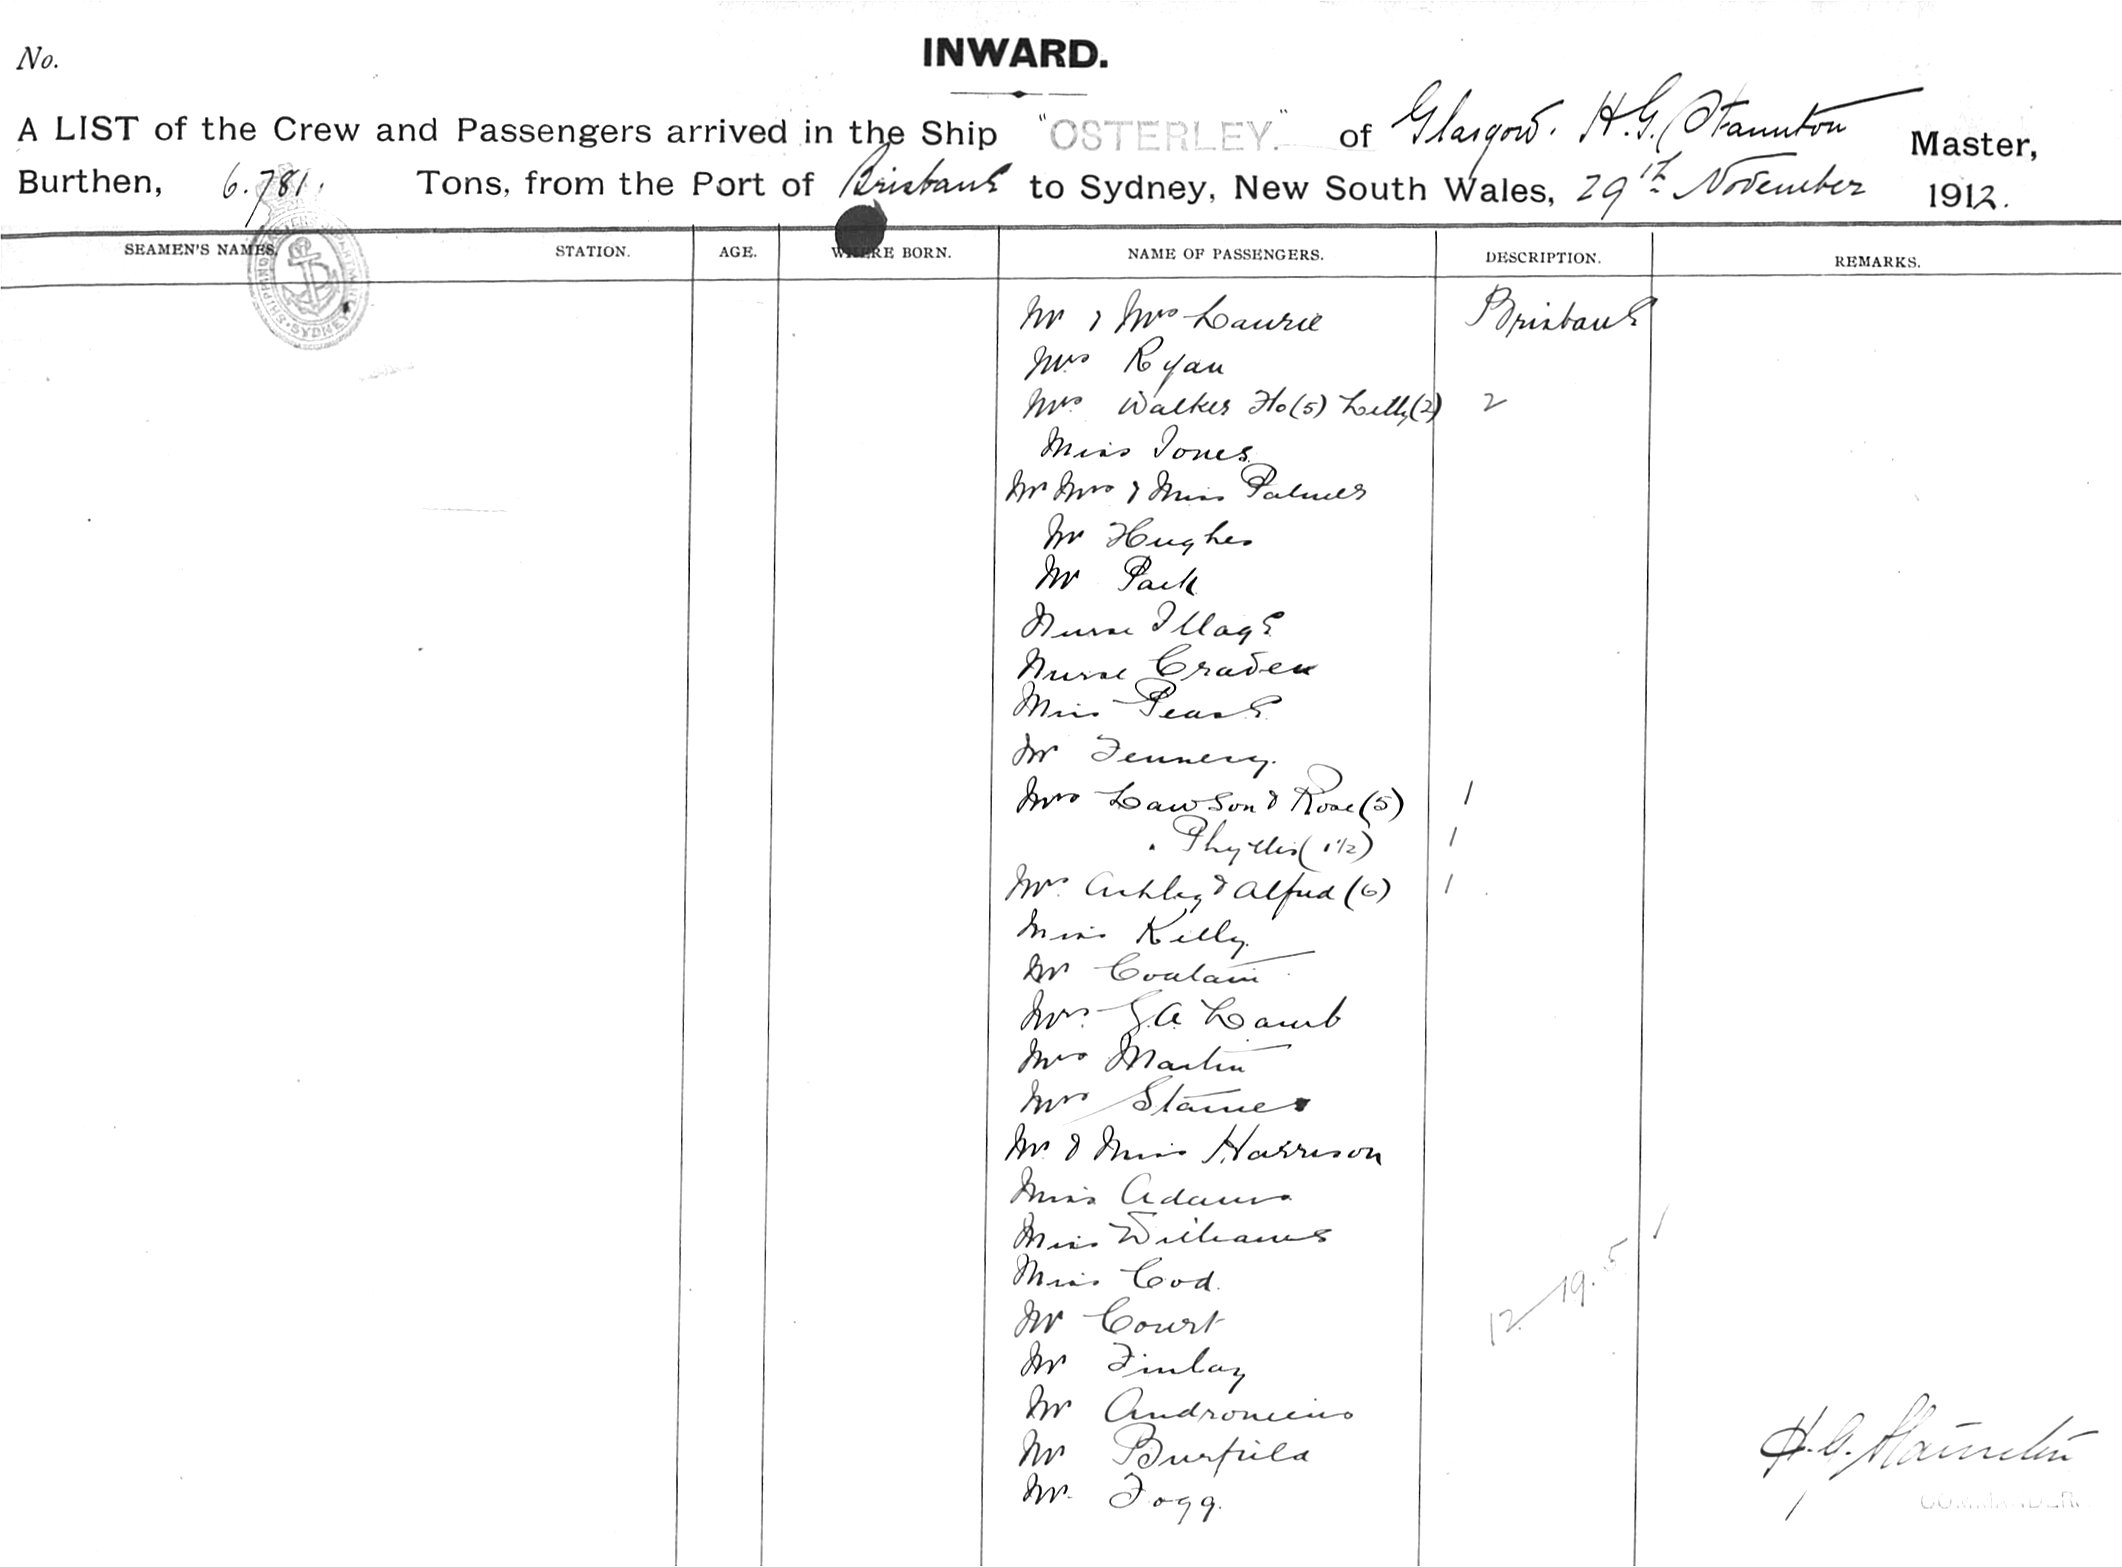 No.
INWARD.
A LIST of the Crew and Passengers arrived in the Ship "OSTERLEY." of Glasgow. H.G. Staunton Master,
Burthen, 6.781. Tons, from the Port of Brisbane to Sydney, New South Wales, 29th November 1912.
SEAMEN'S NAMES. STATION. AGE. WHERE BORN. NAME OF PASSENGERS. DESCRIPTION. REMARKS.
SHIPPING MASTER'S DEPARTMENT SYDNEY
Mr & Mrs Laurie Brisbane
Mrs Ryan
Mrs Walker Flo (5) Lelly (2) 2
Miss Jones
Mr Mrs & Miss Palmer
Mr Hughes
Mr Park
Nurse Illage
Nurse Craven
Miss Pease
Mr Fennery.
Mrs Lawson & Rose (5) 1
Phyllis (1 1/2) 1
Mrs Ashley & Alfred (6) 1
Miss Kelly.
Mr
Mrs G.A. Lamb
Mrs Martin
Mrs Staines
Mr & Miss Harrison
Miss Adams
Miss Williams
Miss Cod.
12 19. 5 1
Mr Court
Mr Finlay
Mr
Mr Burfield
Mr. Fogg.
H.G. Staunton
COMMANDER